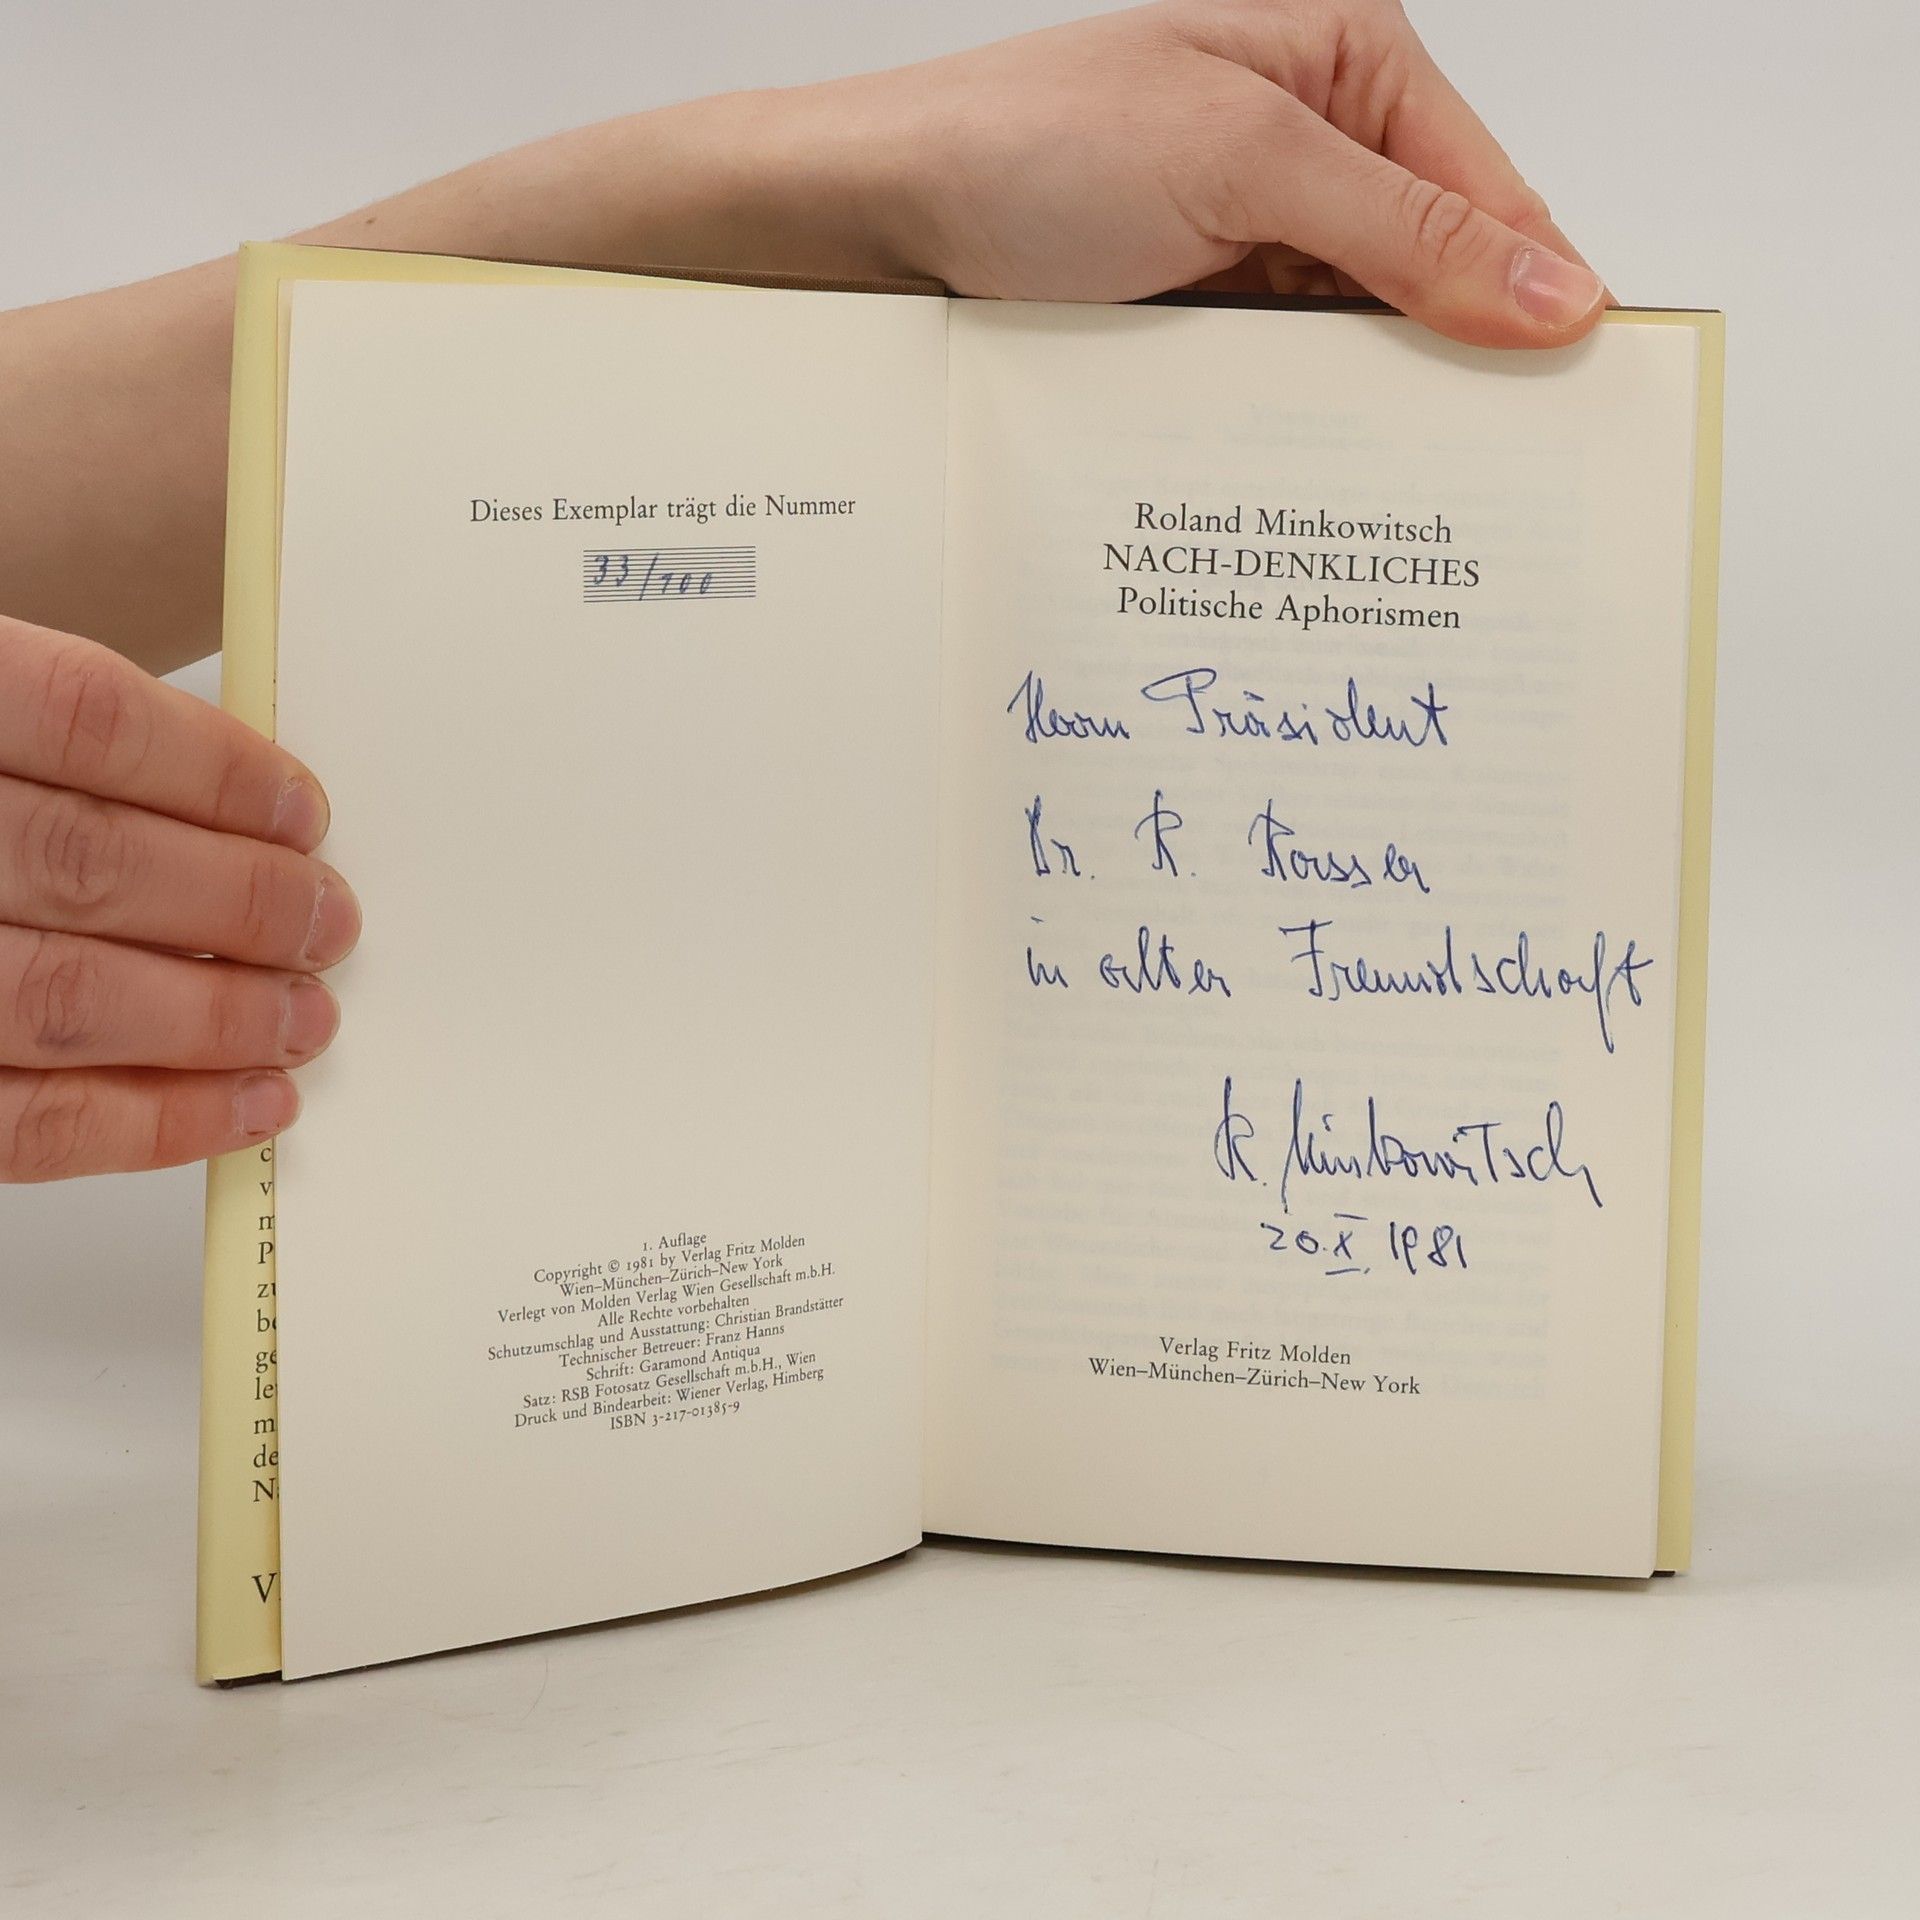 Dieses Exemplar trägt die Nummer
33/100
1. Auflage
Copyright © 1981 by Verlag Fritz Molden
Wien–München–Zürich–New York
Verlegt von Molden Verlag Wien Gesellschaft m.b.H.
Alle Rechte vorbehalten
Schutzumschlag und Ausstattung: Christian Brandstätter
Technischer Betreuer: Franz Hanns
Schrift: Garamond Antiqua
Satz: RSB Fotosatz Gesellschaft m.b.H., Wien
Druck und Bindearbeit: Wiener Verlag, Himberg
ISBN 3-217-01385-9
Roland Minkowitsch
NACH-DENKLICHES
Politische Aphorismen
Herrn Präsident
Dr. R.
in alter Freundschaft
R. Minkowitsch
20.X. 1981
Verlag Fritz Molden
Wien–München–Zürich–New York